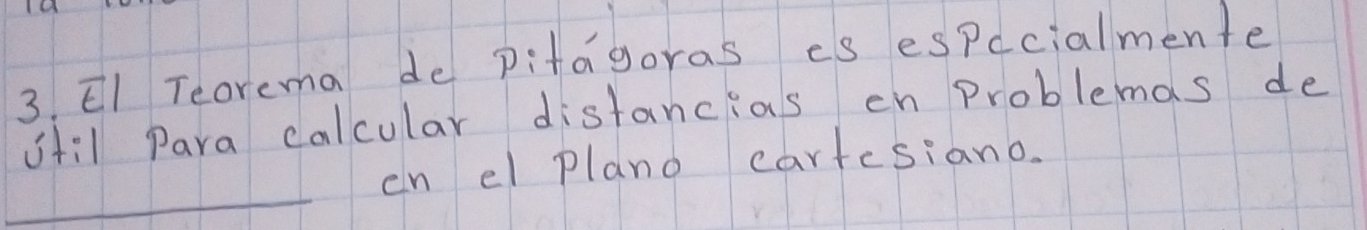 3. El Teorema de Pitágoras es especialmente
útil Para calcular distancias en Problemas de
____________ en el Plano cartesiano.